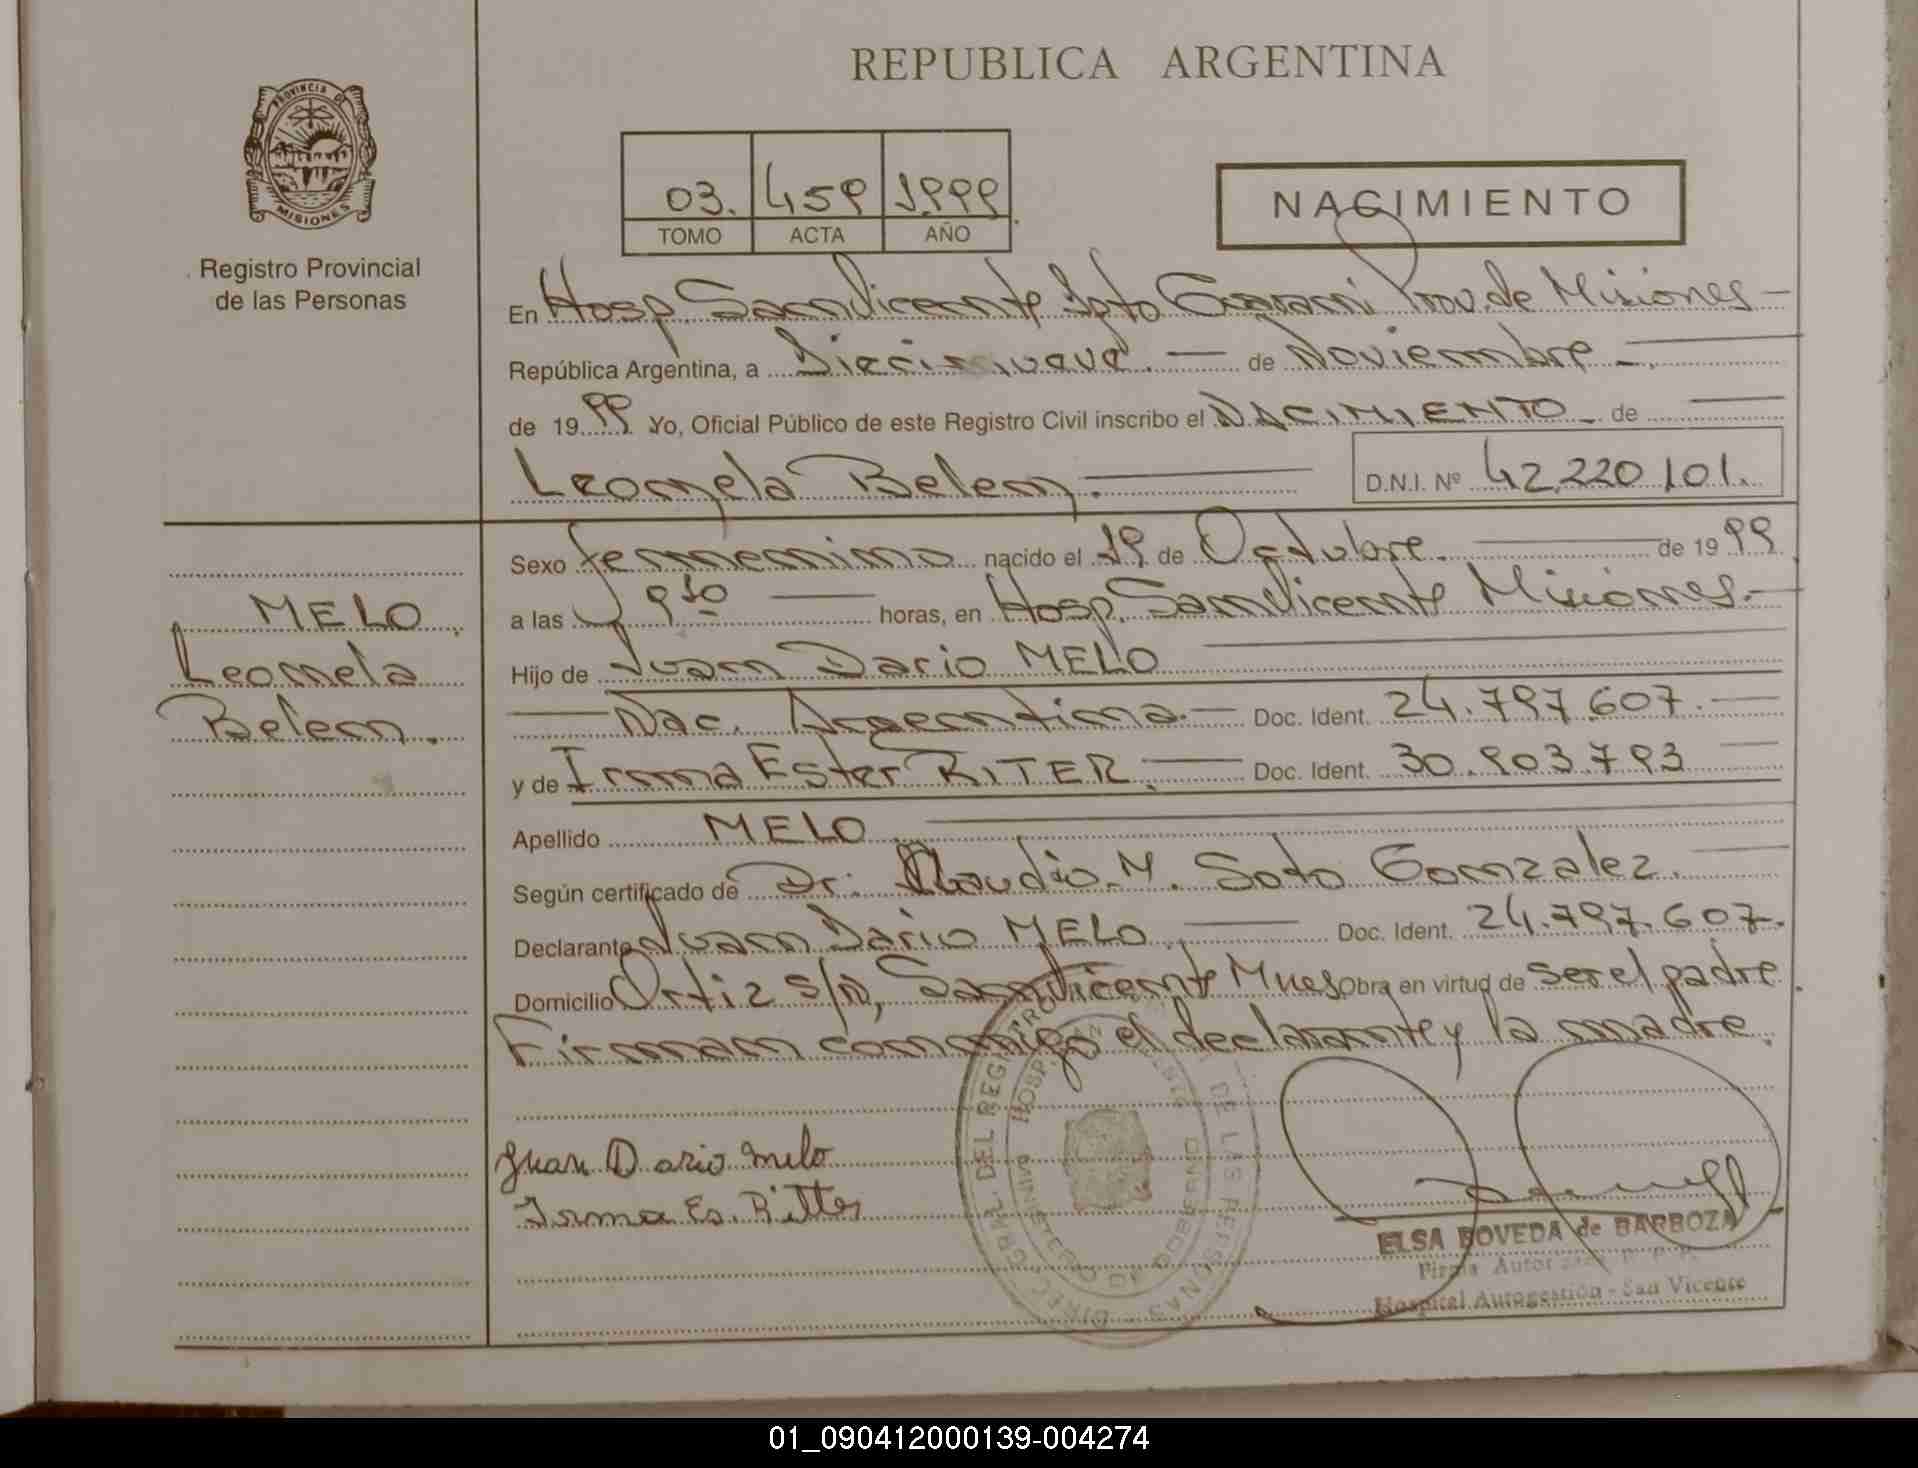 REPUBLICA ARGENTINA
PROVINCIA DE
MISIONES
Registro Provincial
de las Personas
03. 459 1999
TOMO ACTA AÑO
NACIMIENTO
En Hosp. San Vicente Dpto Guarani Prov. de Misiones
República Argentina, a Diecinueve. de Noviembre
de 1999 Yo, Oficial Público de este Registro Civil inscribo el NACIMIENTO de
Leonela Belen. D.N.I. Nº 42.220.101.
Sexo femenino nacido el 19 de Octubre. de 1999
a las 9 10 horas, en Hosp. San Vicente Misiones.
MELO
Leonela
Belen.
Hijo de Juan Dario MELO
Nac. Argentina. Doc. Ident. 24.797.607.
y de Irma Ester RITER Doc. Ident. 30.903.793
Apellido MELO
Según certificado de Dr. Claudio M. Soto Gonzalez.
Declarante Juan Dario MELO Doc. Ident. 24.797.607.
Domicilio Ortiz s/n, San Vicente Mnes Obra en virtud de ser el padre.
Firman conmigo el declarante y la madre.
Juan Dario Melo
Irma Es. Ritter
DIREC. GRAL. DEL REGISTRO DE LAS PERSONAS
MINISTERIO DE GOBIERNO
ELSA BOVEDA de BARBOZA
Firma Autor
Hospital Autogestión - San Vicente
01_090412000139-004274